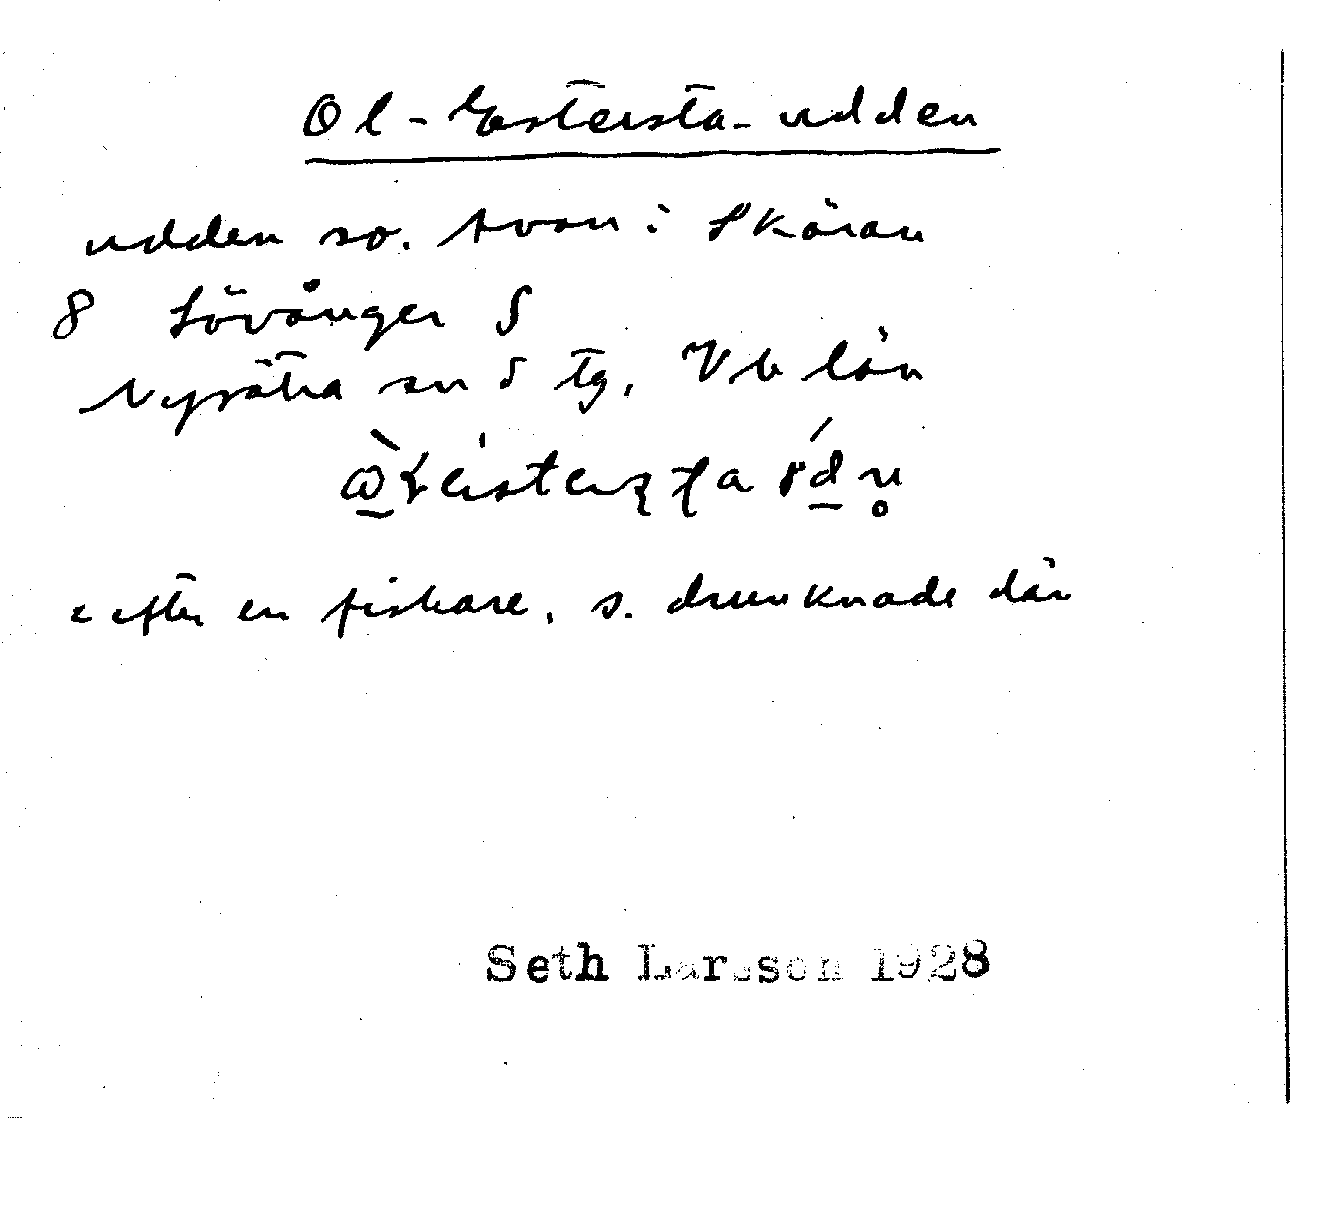 Ol-Estersta-udden
udden so. tvan i Skäran
8 Lövånger S
Nysätra sn S tg, Vb län
efter en fiskare, s. drunknade där
Seth Larsson 1928